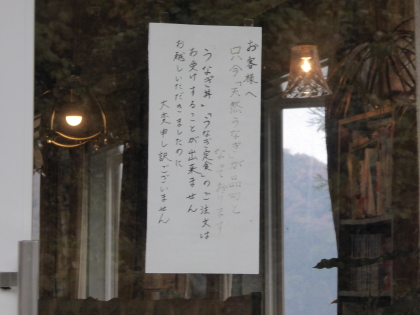 お客様へ
只今「天然うなぎ」が品切し
なっております
うなぎ丼」「うなぎ定食」のご注文は
お受けすることが出来ません
お越しいただきましたのに
大変申し訳ございません